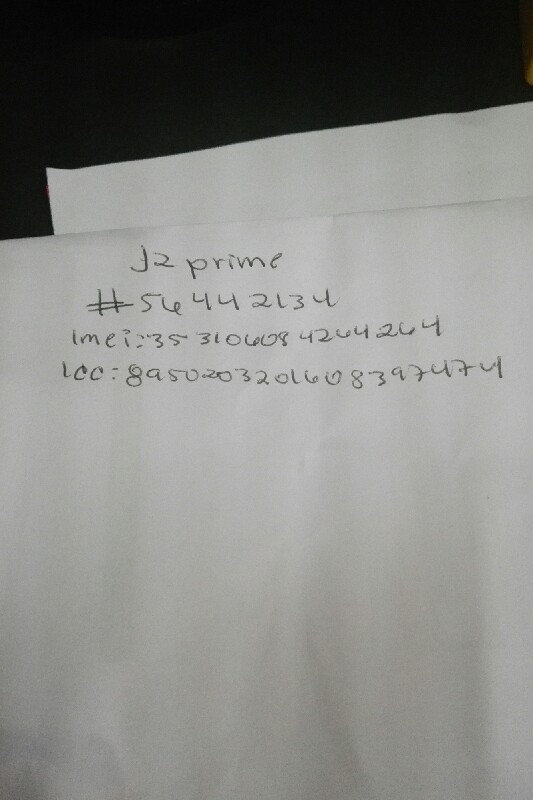 J2 prime
# 56442134
Imei: 353106084264264
ICC: 8950203201608397474